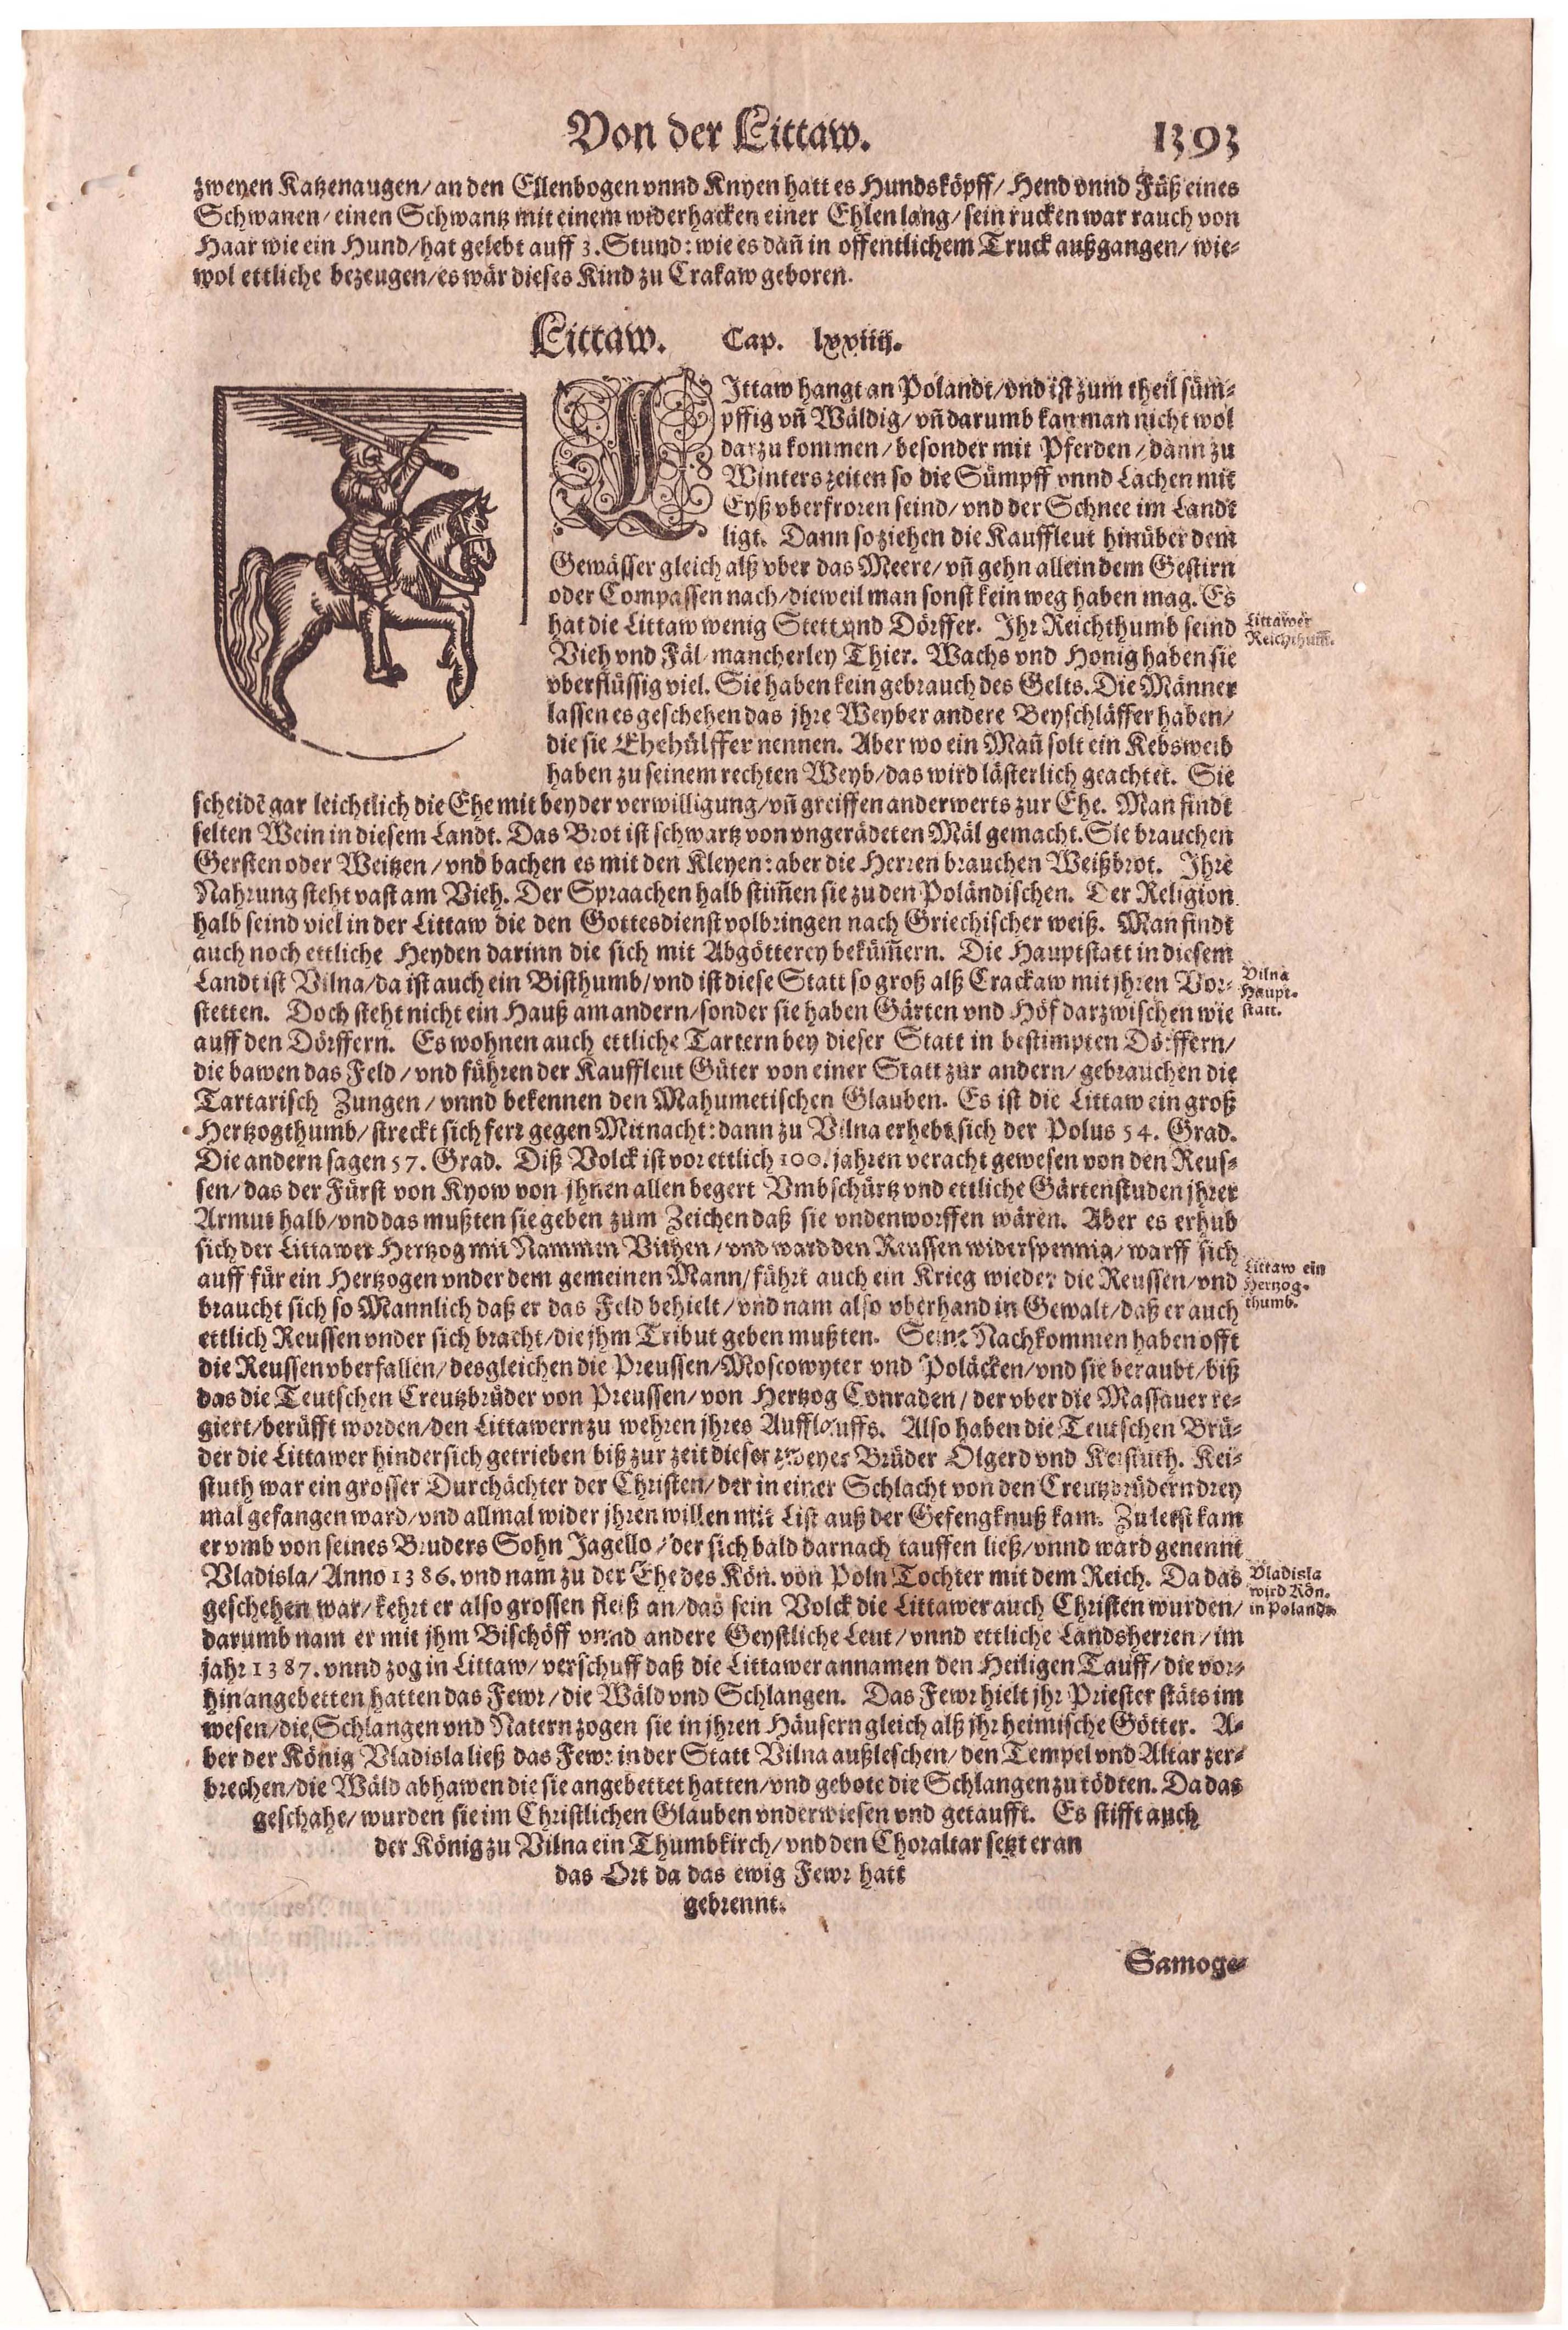 Von der Littaw. 1393
zweyen Katzenaugen/ an den Ellenbogen vnnd Knyen hatt es Hundsköpff/ Hend vnnd Füß eines
Schwanen/ einen Schwantz mit einem widerhacken einer Ehlen lang/ sein rucken war rauch von
Haar wie ein Hund/ hat gelebt auff 3. Stund: wie es dañ in offentlichem Truck außgangen/ wie-
wol ettliche bezeugen/ es wär dieses Kind zu Crakaw geboren.
Littaw. Cap. lxxiiij.
LIttaw hangt an Polandt/ vnd ist zum theil süm-
pffig vñ Wäldig/ vñ darumb kan man nicht wol
darzu kommen/ besonder mit Pferden/ dann zu
Winters zeiten so die Sümpff vnnd Lachen mit
Eyß vberfroren seind/ vnd der Schnee im Landt
ligt. Dann so ziehen die Kauffleut hinüber dem
Gewässer gleich alß vber das Meere/ vñ gehn allein dem Gestirn
oder Compassen nach/ dieweil man sonst kein weg haben mag. Es
hat die Littaw wenig Stett vnd Dörffer. Ihr Reichthumb seind
Littawer
Reichthumb.
Vieh vnd Fäl mancherley Thier. Wachs vnd Honig haben sie
vberflüssig viel. Sie haben kein gebrauch des Gelts. Die Männer
lassen es geschehen das jhre Weyber andere Beyschläffer haben/
die sie Ehehülffer nennen. Aber wo ein Mañ solt ein Kebsweib
haben zu seinem rechten Weyb/ das wird lästerlich geachtet. Sie
scheidē gar leichtlich die Ehe mit beyder verwilligung/ vñ greiffen anderwerts zur Ehe. Man findt
selten Wein in diesem Landt. Das Brot ist schwartz von vngerädeten Mäl gemacht. Sie brauchen
Gersten oder Weitzen/ vnd bachen es mit den Kleyen: aber die Herren brauchen Weißbrot. Ihre
Nahrung steht vast am Vieh. Der Spraachen halb stim̃en sie zu den Poländischen. Der Religion
halb seind viel in der Littaw die den Gottesdienst volbringen nach Griechischer weiß. Man findt
auch noch ettliche Heyden darinn die sich mit Abgötterey beküm̃ern. Die Hauptstatt in diesem
Landt ist Vilna/ da ist auch ein Bisthumb/ vnd ist diese Statt so groß alß Crackaw mit jhren Vor-
Vilna
Haupt-
statt.
stetten. Doch steht nicht ein Hauß am andern/ sonder sie haben Gärten vnd Höf darzwischen wie
auff den Dörffern. Es wohnen auch ettliche Tartern bey dieser Statt in bestimpten Dörffern/
die bawen das Feld/ vnd führen der Kauffleut Güter von einer Statt zur andern/ gebrauchen die
Tartarisch Zungen/ vnnd bekennen den Mahumetischen Glauben. Es ist die Littaw ein groß
Hertzogthumb/ streckt sich ferr gegen Mitnacht: dann zu Vilna erhebt sich der Polus 54. Grad.
Die andern sagen 57. Grad. Diß Volck ist vor ettlich 100. jahren veracht gewesen von den Reus-
sen/ das der Fürst von Kyow von jhnen allen begert Vmbschürtz vnd ettliche Gärtenstuden jhrer
Armut halb/ vnd das mußten sie geben zum Zeichen daß sie vndenworffen wären. Aber es erhub
sich der Littawer Hertzog mit Nammen Vithen/ vnd ward den Reussen widerspennig/ warff sich
auff für ein Hertzogen vnder dem gemeinen Mann/ führt auch ein Krieg wieder die Reussen/ vnd
Littaw ein
Hertzog-
thumb.
braucht sich so Mannlich daß er das Feld behielt/ vnd nam also vberhand in Gewalt/ daß er auch
ettlich Reussen vnder sich bracht/ die jhm Tribut geben mußten. Seine Nachkommen haben offt
die Reussen vberfallen/ desgleichen die Preussen/ Moscowyter vnd Poläcken/ vnd sie beraubt/ biß
das die Teutschen Creutzbrüder von Preussen/ von Hertzog Conraden/ der vber die Massauer re-
giert/ berüfft worden/ den Littawern zu wehren jhres Aufflauffs. Also haben die Teutschen Brü-
der die Littawer hindersich getrieben biß zur zeit dieser zweyer Brüder Olgerd vnd Keistuth. Kei-
stuth war ein grosser Durchächter der Christen/ der in einer Schlacht von den Creutzbrüdern drey
mal gefangen ward/ vnd allmal wider jhren willen mit List auß der Gefengknuß kam. Zuletst kam
er vmb von seines Bruders Sohn Jagello/ der sich bald darnach tauffen ließ/ vnnd ward genennt
Vladisla/ Anno 1386. vnd nam zu der Ehe des Kön. von Poln Tochter mit dem Reich. Da das
Vladisla
wird Kön.
in Polandt.
geschehen war/ kehrt er also grossen fleiß an/ das sein Volck die Littawer auch Christen wurden/
darumb nam er mit jhm Bischöff vnnd andere Geystliche Leut/ vnnd ettliche Landsherren/ im
jahr 1387. vnnd zog in Littaw/ verschuff daß die Littawer annamen den Heiligen Tauff/ die vor-
hin angebetten hatten das Fewr/ die Wäld vnd Schlangen. Das Fewr hielt jhr Priester stäts im
wesen/ die Schlangen vnd Natern zogen sie in jhren Häusern gleich alß jhr heimische Götter. A-
ber der König Vladisla ließ das Fewr in der Statt Vilna außleschen/ den Tempel vnd Altar zer-
brechen/ die Wäld abhawen die sie angebettet hatten/ vnd gebote die Schlangen zu tödten. Da das
geschahe/ wurden sie im Christlichen Glauben vnderwiesen vnd getaufft. Es stifft auch
der König zu Vilna ein Thumbkirch/ vnd den Choraltar setzt er an
das Ort da das ewig Fewr hatt
gebrennt.
Samoge-